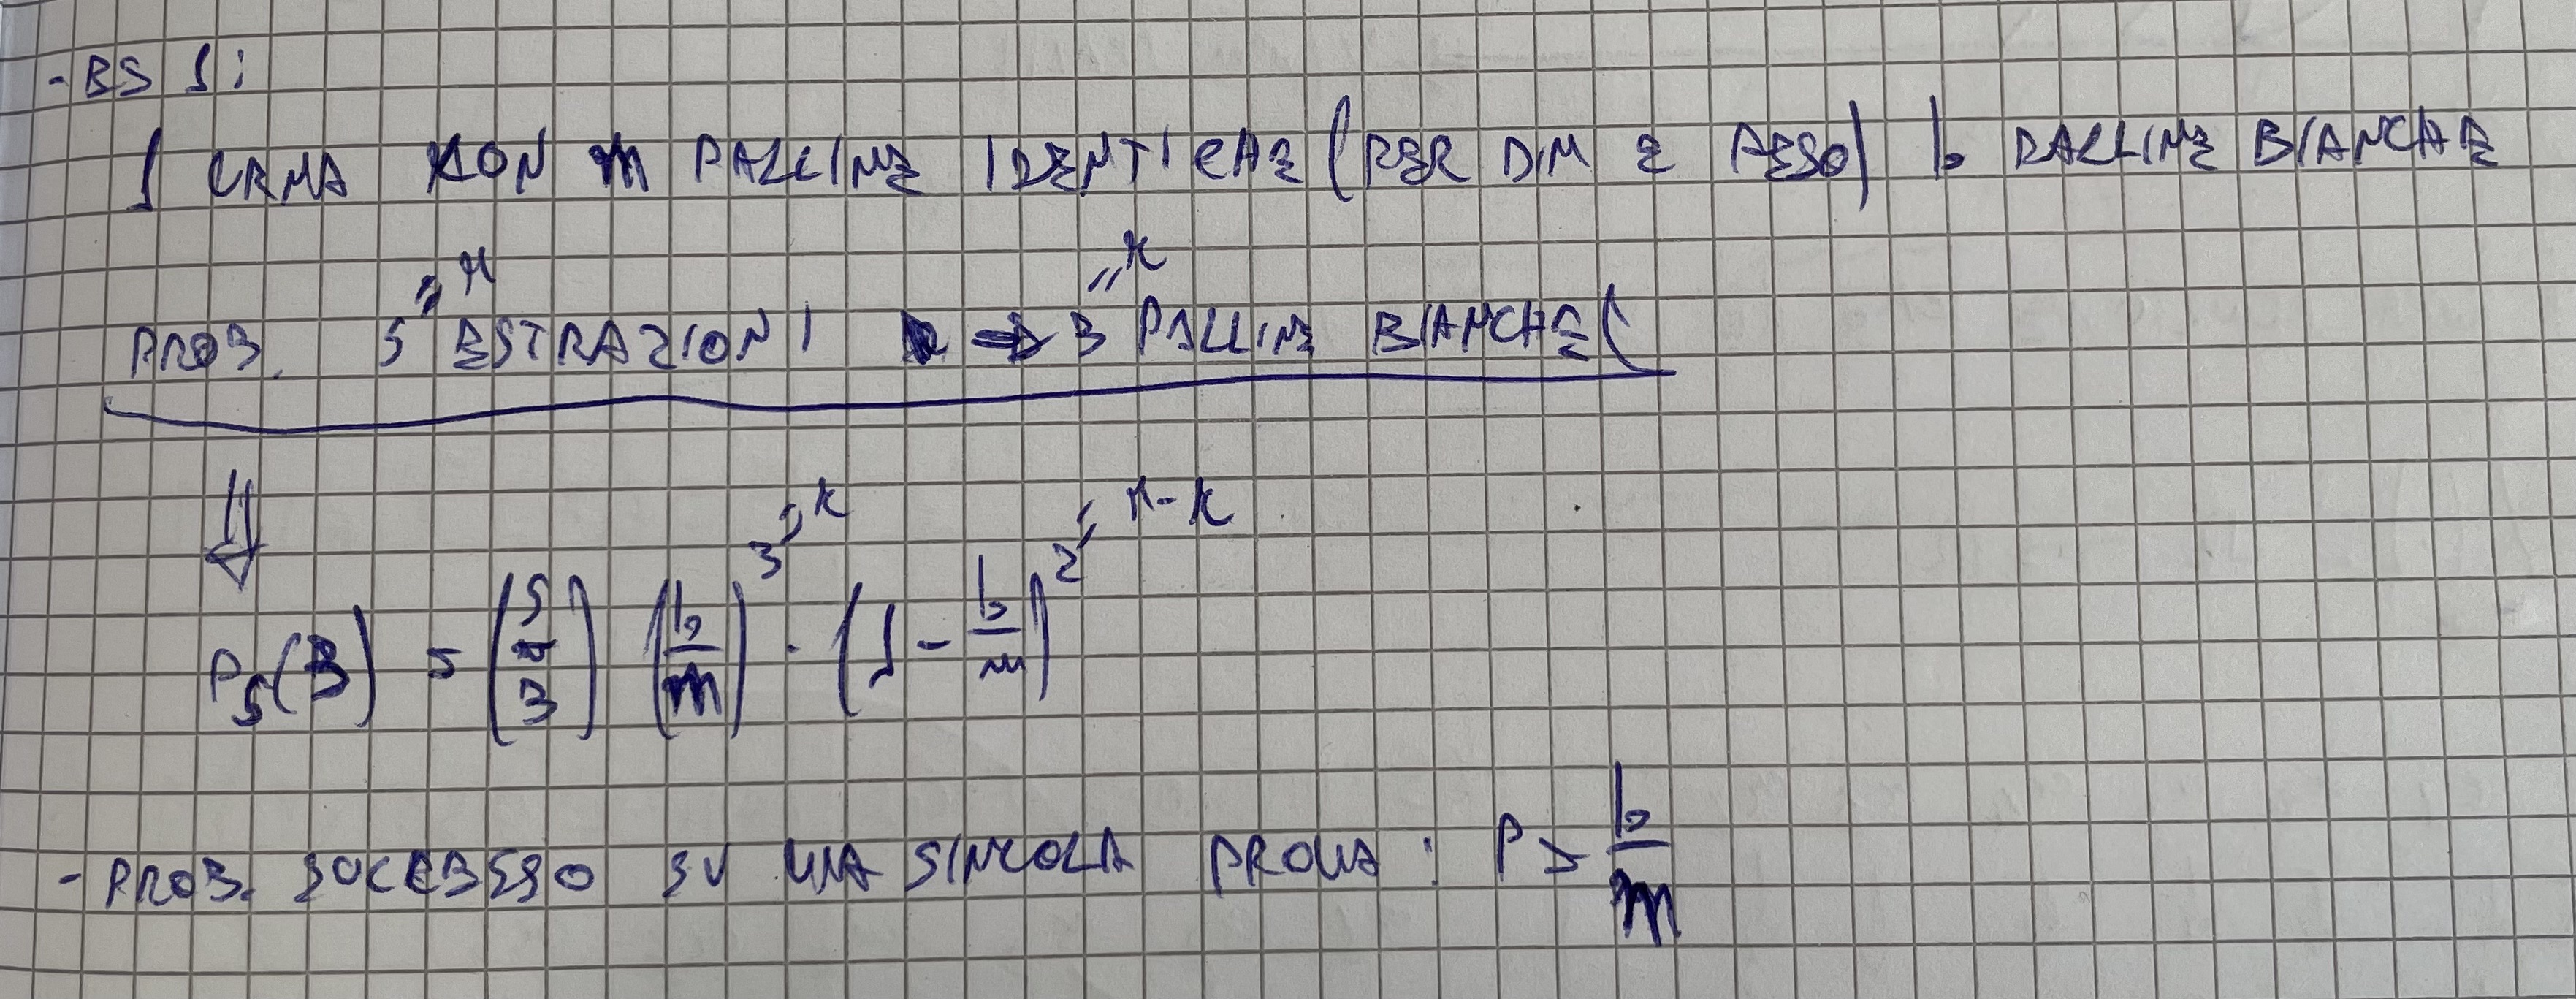 - ES 1:
1 URNA CON m PALLINE IDENTICHE (PER DIM E PESO) b PALLINE BIANCHE
= n = k
PROB. 5 ESTRAZIONI => 3 PALLINE BIANCHE (
⇓
= k = n - k
P5(3) = (5/3) (b/m)^3 · (1 - b/m)^2
- PROB. SUCCESSO SU UNA SINGOLA PROVA : P = b/m